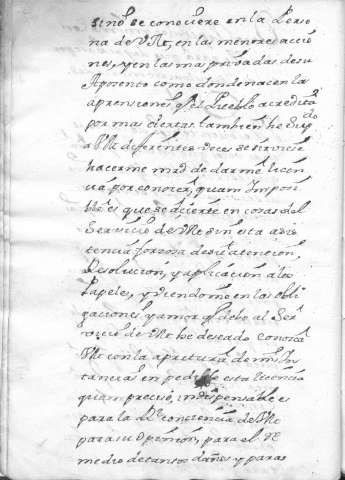 si no se conociere en la Perso
na de VMg, en las menores accio
nes, y en las mas privadas de su
Aposento como donde nacen las
aprensiones q el Pueblo acredita
por mas ciertas, tambien he
a VMg diferentes veces se sirviese
hacerme mrd de darme licen
cia por conocer, quam Imposi
ble es que se acierte en cosas del
Servicio de VMg sin esta asis
tencia forzosa de su atencion,
Resolucion, y aplicacion a los
Papeles, y viendome en las obli
gaciones y amor q debo al Ser
vicio de VMg he deseado conozca
VMg con la apretura de mis Ins
tancias en pedille esta licencia
quam preciso, indispensable es
para la Rl conciencia de VMg
para su opinion, para el Re
medio de tantos daños y para